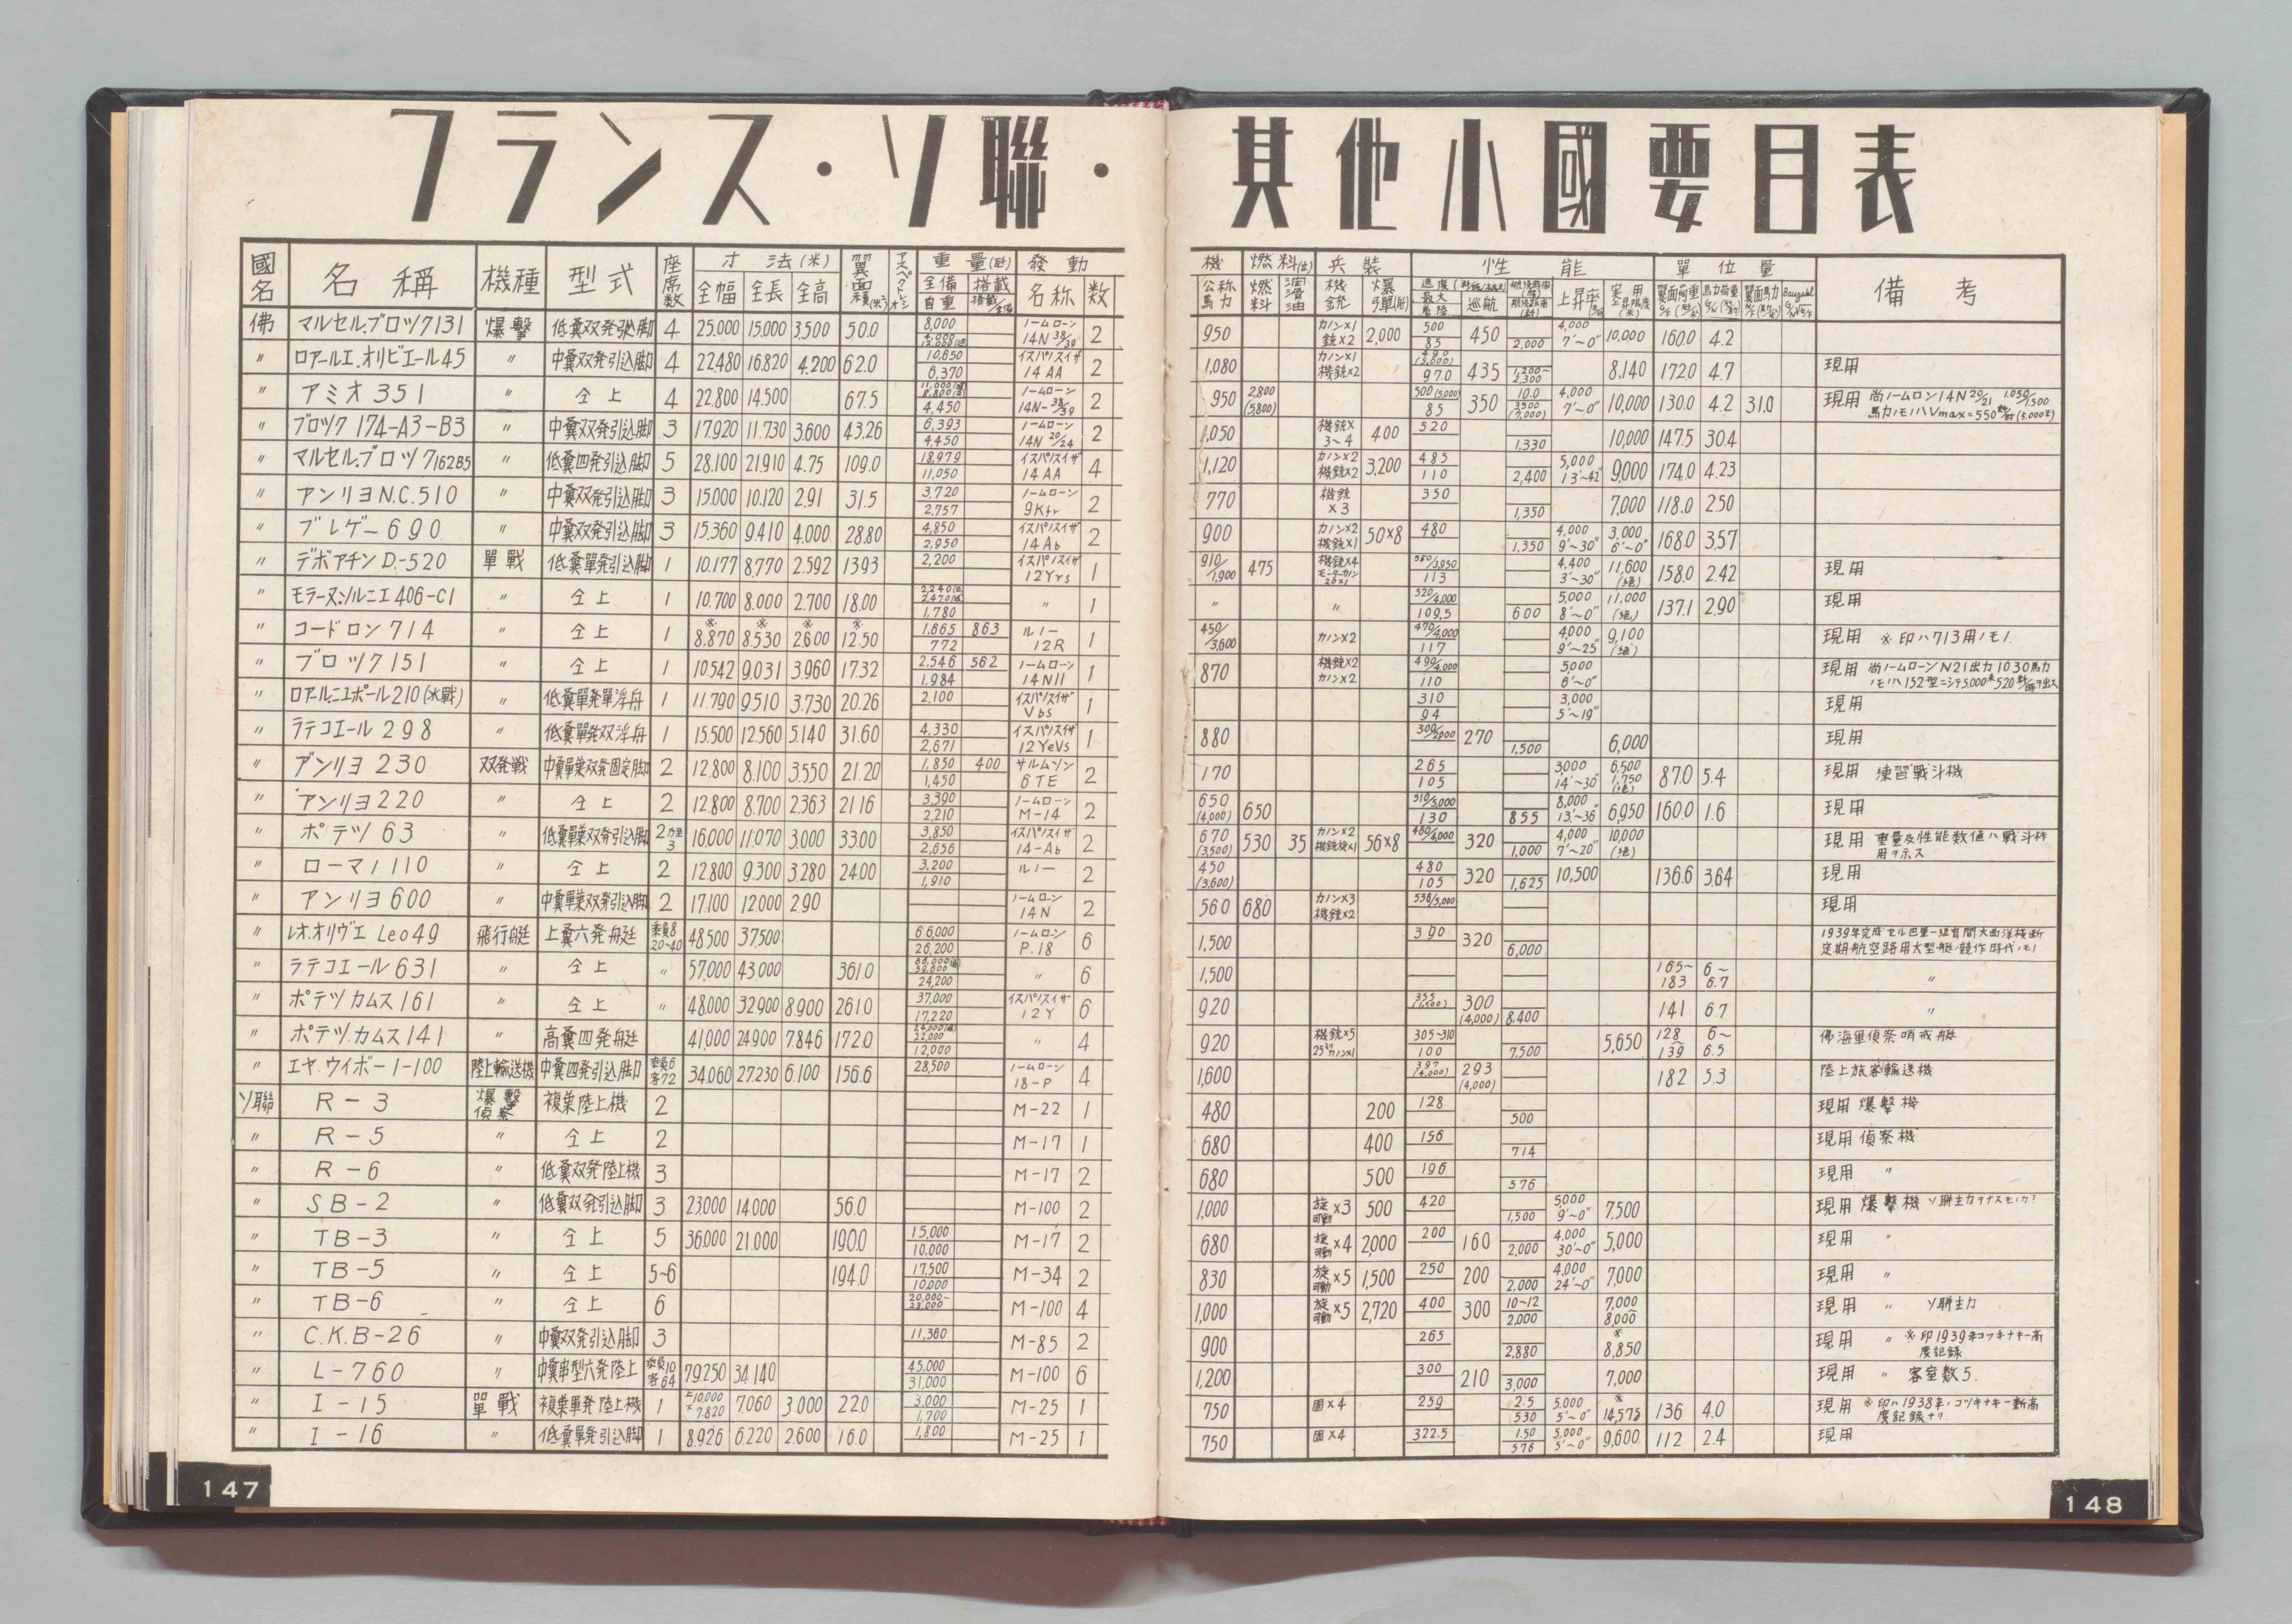 フランス・ソ聯・其他小國要目表
國名 名稱 機種 型式 座席数 寸法(米) 全幅 全長 全高 翼面積(米²) 重量(瓩) 全備 自重 搭載 發動機 名称 数 公称馬力 燃料 燃料 滑油 兵装 機銃 爆弾(瓩) 性能 速度 最大 巡航 上昇率 單位量 備考
佛 マルセル.ブロック131 爆撃 低翼双発引込脚 4 25.000 15.000 3.500 50.0 8,000 ノームローン 14N 38/39 2 950 カノン×1 銃×2 2,000 500 85 450 2,000 4,000 7'~0" 10,000 160.0 4.2
〃 ロアールエ.オリビエール45 〃 中翼双発引込脚 4 22.480 16.820 4.200 62.0 10,650 6,370 イスパノスイザ 14AA 2 1,080 カノン×1 機銃×2 970 435 1,200~2,300 8,140 172.0 4.7 現用
〃 アミオ351 〃 仝上 4 22.800 14.500 67.5 4,450 ノームローン 14N-38/39 2 950 2,800 (5800) 500(5,000) 85 350 10.0 4,000 7'~0" 10,000 130.0 4.2 31.0 現用 尚ノームローン14N 20/21 1.050/1.500 馬力ノモノハVmax=550粁/時(5,000米)
〃 ブロック174-A3-B3 〃 中翼双発引込脚 3 17.920 11.730 3.600 43.26 6,393 4,450 ノームローン 14N 20/24 2 1,050 機銃× 3~4 400 520 1,330 10,000 147.5 30.4
〃 マルセル.ブロック162B5 〃 低翼四発引込脚 5 28.100 21.910 4.75 109.0 18,979 11,050 イスパノスイザ 14AA 4 1,120 カノン×2 機銃×2 3,200 485 110 2,400 5,000 13'~42" 9,000 174.0 4.23
〃 アンリヨN.C.510 〃 中翼双発引込脚 3 15.000 10.120 2.91 31.5 3,720 2,757 ノームローン 9Kfr 2 770 機銃×3 350 1,350 7,000 118.0 2.50
〃 ブレゲー690 〃 中翼双発引込脚 3 15.360 9.410 4.000 28.80 4,850 2,950 イスパノスイザ 14Ab 2 900 カノン×2 機銃×1 50×8 480 1,350 4,000 9'~30" 3,000 6'~0" 168.0 3.57
〃 デボアチンD.-520 單戰 低翼單発引込脚 1 10.177 8.770 2.592 1393 2,200 イスパノスイザ 12Yrs 1 910/1,900 475 機銃×4 モーターカノン 113 4,400 3'~30" 11,600 (絶) 158.0 2.42 現用
〃 モラーヌソルニエ406-C1 〃 仝上 1 10.700 8.000 2.700 18.00 1,780 〃 1 〃 〃 520/4,000 109.5 600 5,000 8'~0" 11,000 (絶) 137.1 2.90 現用
〃 コードロン714 〃 仝上 1 ※8.870 ※8.530 ※2.600 ※12.50 1,665 772 863 ルノー 12R 1 450/3,600 カノン×2 470/4,000 117 4,000 9'~25" 9,100 (絶) 現用 ※印ハ713用ノモノ.
〃 ブロック151 〃 仝上 1 10.542 9.031 3.960 17.32 2,546 1,984 562 ノームローン 14N11 1 870 機銃×2 カノン×2 490/4,000 110 5000 6'~0" 現用 尚ノームローンN21出力1030馬力ノモノハ152型ニシテ5.000米520粁/時ヲ出ス
〃 ロアールニユポール210(水戰) 〃 低翼單発單浮舟 1 11.790 9.510 3.730 20.26 2,100 イスパノスイザ Vbs 1 310 94 3,000 5'~19" 現用
〃 ラテコエール298 〃 低翼單発双浮舟 1 15.500 12.560 5.140 31.60 4,330 2,671 イスパノスイザ 12YeVs 1 880 300/2000 270 1,500 6,000 現用
〃 アンリヨ230 双発戰 中翼單葉双発固定脚 2 12.800 8.100 3.550 21.20 1,850 1,450 400 サルムソン 6TE 2 170 265 105 3,000 14'~30" 6,500 1,750 (絶) 87.0 5.4 現用 練習戰斗機
〃 アンリヨ220 〃 仝上 2 12.800 8.700 2.363 21.16 3,390 2,210 ノームローン M-14 2 650 (4,000) 650 510/5,000 130 855 8,000 13'~36" 6,950 160.0 1.6 現用
〃 ポテツ63 〃 低翼單葉双発引込脚 2乃至3 16.000 11.070 3.000 33.00 3,850 2,656 イスパノスイザ 14-Ab 2 670 (3,500) 530 35 カノン×2 機銃旋×1 56×8 460/4,000 320 1,000 4,000 7'~20" 10,000 (絶) 現用 重量及性能数値ハ戰斗機用ヲ示ス
〃 ローマノ110 〃 仝上 2 12.800 9.300 3.280 24.00 3,200 1,910 ルノー 2 450 (3,600) 480 105 320 1,625 10,500 136.6 3.64 現用
〃 アンリヨ600 〃 中翼單葉双発引込脚 2 17.100 12.000 2.90 ノームローン 14N 2 560 680 カノン×3 機銃×2 538/5,000 現用
〃 レオ.オリヴエ Leo49 飛行艇 上翼六発艇 乗員8 20~40 48.500 37.500 66,000 26,200 ノームローン P.18 6 1,500 390 320 6,000 1939年完成
〃 ラテコエール631 〃 仝上 〃 57.000 43.000 361.0 24,200 〃 6 1,500 165~183 6~6.7 〃
〃 ポテツカムス161 〃 仝上 〃 48.000 32.900 8.900 261.0 37,000 17,220 イスパノスイザ 12Y 6 920 355 300 (4,000) 8.400 141 6.7 〃
〃 ポテツ.カムス141 〃 高翼四発艇 41.000 24.900 7.846 172.0 22,000 12,000 〃 4 920 機銃×5 305~310 100 7,500 5,650 128~139 6~6.5 佛海軍偵察哨戒艇
〃 エヤ.ウイボー1-100 陸上輸送機 中翼四発引込脚 乗員6 客72 34.060 27.230 6.100 156.6 28,500 ノームローン 18-P 4 1,600 397 (4,000) 293 (4,000) 182 5.3 陸上旅客輸送機
ソ聯 R-3 爆撃偵察 複葉陸上機 2 M-22 1 480 200 128 500 現用 爆撃機
〃 R-5 〃 仝上 2 M-17 1 680 400 156 714 現用 偵察機
〃 R-6 〃 低翼双発陸上機 3 M-17 2 680 500 196 576 現用 〃
〃 SB-2 〃 低翼双発引込脚 3 23.000 14.000 56.0 M-100 2 1,000 旋可動×3 500 420 1,500 5000 9'~0" 7,500 現用 爆撃機 ソ聯主力ヲナスモノカ?
〃 TB-3 〃 仝上 5 36.000 21.000 190.0 15,000 10,000 M-17 2 680 旋可動×4 2,000 200 160 2,000 4,000 30'~0" 5,000 現用 〃
〃 TB-5 〃 仝上 5~6 194.0 17,500 10,000 M-34 2 830 旋可動×5 1,500 250 200 2,000 4,000 24'~0" 7,000 現用 〃
〃 TB-6 〃 仝上 6 20,000~23,000 M-100 4 1,000 旋可動×5 2,720 400 300 10~12 2,000 7,000~8,000 現用 〃 ソ聯主力
〃 C.K.B-26 〃 中翼双発引込脚 3 11,360 M-85 2 900 265 2,880 ※8,850 現用 〃 ※印1939年コツキナキー高度記録
〃 L-760 〃 中翼串型六発陸上 乗員10 客64 79.250 34.140 45,000 31,000 M-100 6 1,200 300 210 3,000 7,000 現用 〃 客室数5.
〃 I-15 單戰 複葉單発陸上機 1 上10,000 下7.820 7.060 3.000 22.0 3,000 1,700 M-25 1 750 固×4 259 2.5 530 5,000 5'~0" ※14,575 136 4.0 現用 ※印ハ1938年ノコツキナキー新高度記録ナリ.
〃 I-16 〃 低翼單発引込脚 1 8.926 6.220 2.600 16.0 1,800 M-25 1 750 固×4 322.5 1.50 576 5,000 5'~0" 9,600 112 2.4 現用
147
148